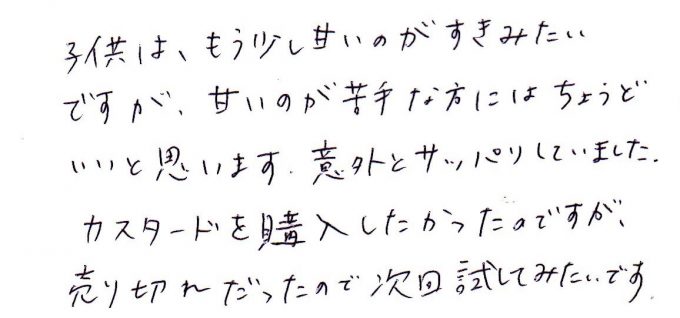 子供は、もう少し甘いのがすきみたい
ですが、甘いのが苦手な方にはちょうど
いいと思います。意外とサッパリしていました。
カスタードを購入したかったのですが、
売り切れだったので次回試してみたいです